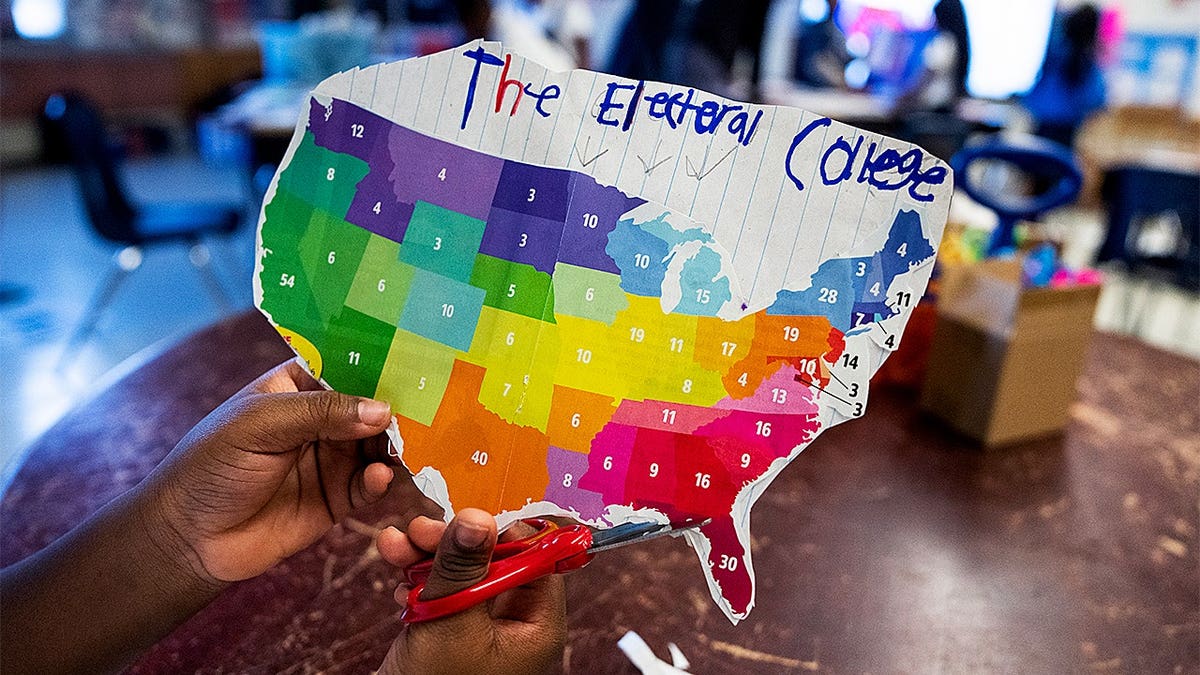 The Electoral College
12
4
3
10
4
8
4
3
3
3
10
4
28
15
11
7
4
54
6
6
10
5
6
19
11
17
19
14
11
5
6
10
8
4
10
3
3
13
7
6
11
16
40
8
6
9
16
9
30